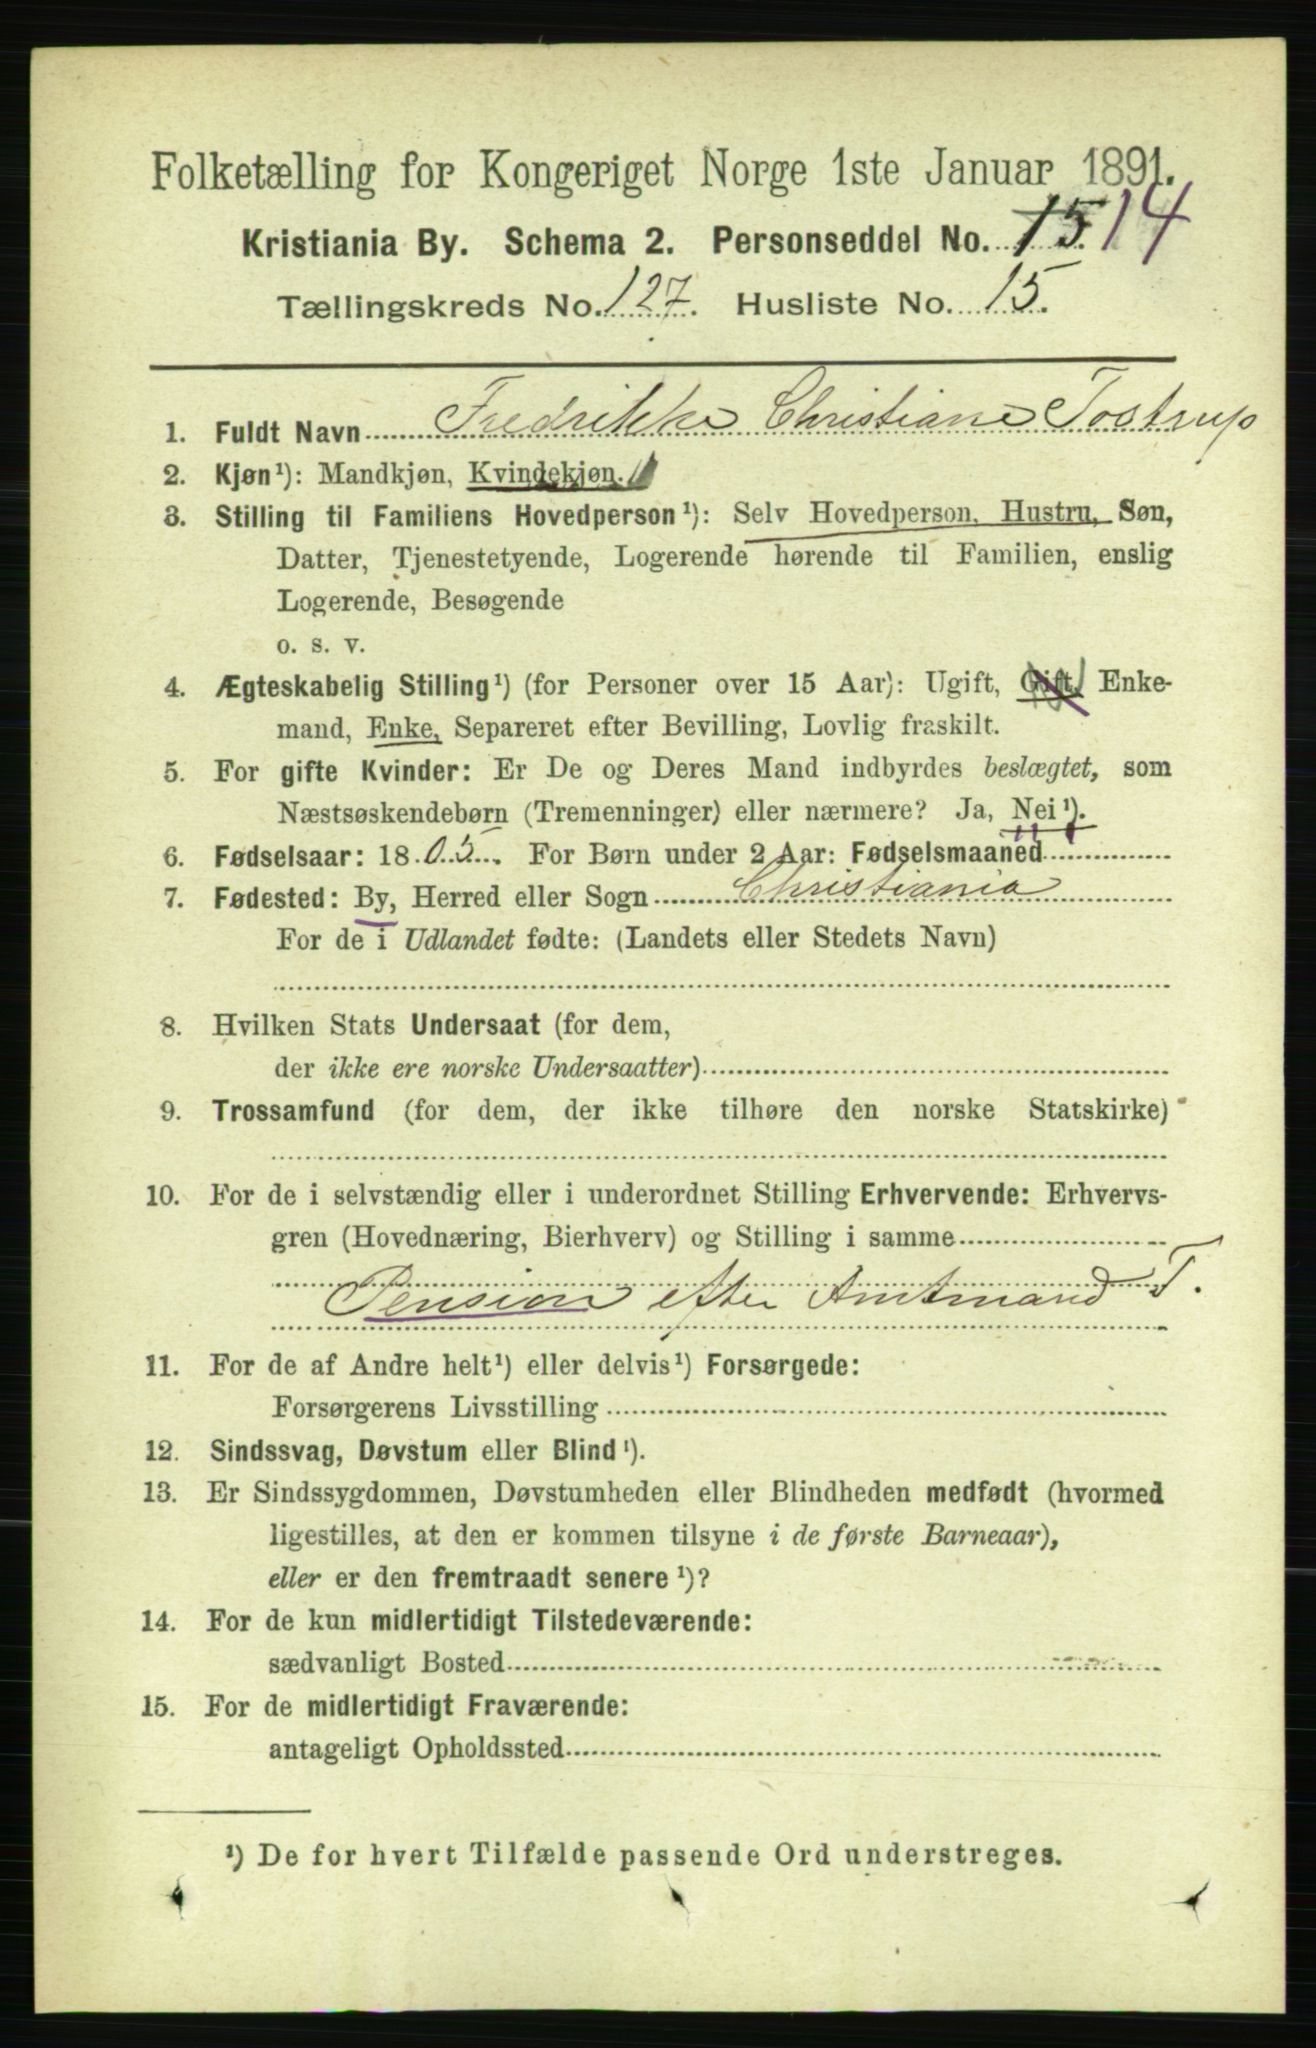 Folketælling for Kongeriget Norge 1ste Januar 1891.
Kristiania By. Schema 2. Personseddel No. 15. 14
Tællingskreds No. 127. Husliste No. 15.
1. Fuldt Navn Fredrikke Christiane Tostrup
2. Kjøn¹): Mandkjøn, Kvindekjøn.
3. Stilling til Familiens Hovedperson¹): Selv Hovedperson, Hustru, Søn,
Datter, Tjenestetyende, Logerende hørende til Familien, enslig
Logerende, Besøgende
o. s. v.
4. Ægteskabelig Stilling¹) (for Personer over 15 Aar): Ugift, Gift, Enke-
mand, Enke, Separeret efter Bevilling, Lovlig fraskilt.
5. For gifte Kvinder: Er De og Deres Mand indbyrdes beslægtet, som
Næstsøskendebørn (Tremenninger) eller nærmere? Ja, Nei¹).
6. Fødselsaar: 1805. For Børn under 2 Aar: Fødselsmaaned
7. Fødested: By, Herred eller Sogn Christiania
For de i Udlandet fødte: (Landets eller Stedets Navn)
8. Hvilken Stats Undersaat (for dem,
der ikke ere norske Undersaatter)
9. Trossamfund (for dem, der ikke tilhøre den norske Statskirke)
10. For de i selvstændig eller i underordnet Stilling Erhvervende: Erhvervs-
gren (Hovednæring, Bierhverv) og Stilling i samme
Pension efter Amtmand T.
11. For de af Andre helt¹) eller delvis¹) Forsørgede:
Forsørgerens Livsstilling
12. Sindssvag, Døvstum eller Blind¹).
13. Er Sindssygdommen, Døvstumheden eller Blindheden medfødt (hvormed
ligestilles, at den er kommen tilsyne i de første Barneaar),
eller er den fremtraadt senere¹)?
14. For de kun midlertidigt Tilstedeværende:
sædvanligt Bosted
15. For de midlertidigt Fraværende:
antageligt Opholdssted
¹) De for hvert Tilfælde passende Ord understreges.